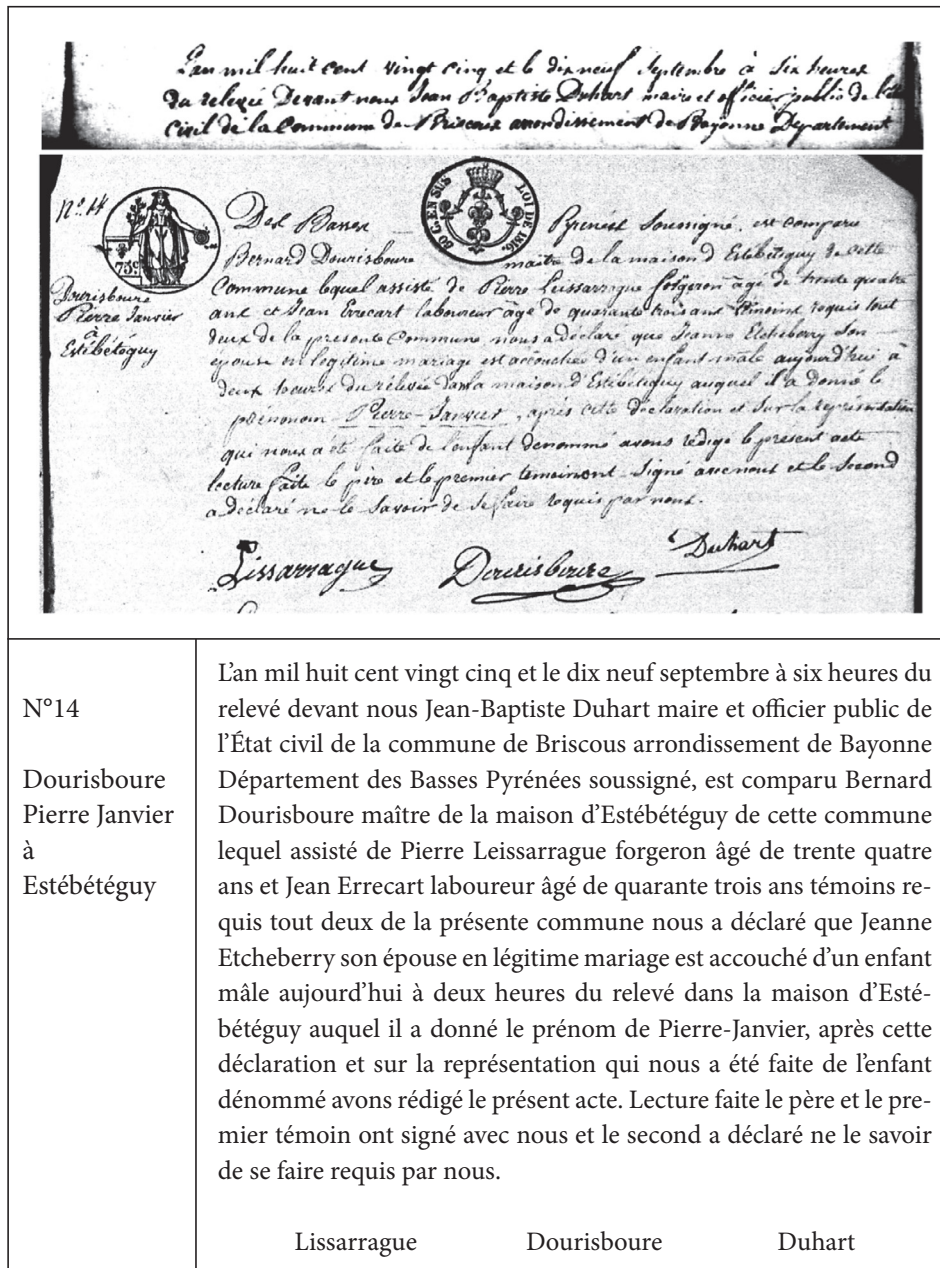 L'an mil huit cent vingt cinq et le dix neuf Septembre à Six heures
du relevée Devant nous Jean Baptiste Duhart maire et officier public de
Civil de la Commune de Briscous arrondissement de Bayonne Departement
N°. 14
75c.
30 C. EN SUS
LOI DE 1816.
Des Basses Pyrenées Soussigné, est comparu
Bernard Dourisboure maître de la maison d'Estébéteguy de cette
Commune lequel assisté de Pierre Leissarrague forgeron âgé de trente quatre
ans et Jean Errecart laboureur âgé de quarante trois ans témoins requis tout
deux de la presente Commune, nous a déclaré que Jeanne Etcheberry Son
épouse en légitime mariage est accouchée d'un enfant mâle aujourd'hui à
deux heures du rélevée dans la maison d'Estébéteguy auquel il a donné le
prénom Pierre-Janvier, après cette déclaration et Sur la représentation
qui nous a été faite de l'enfant denommé avons redigé le present acte
lecture faite le père et le premier temoin ont Signé avec nous et le Second
a déclaré ne le Savoir de se faire requis par nous.
Dourisboure
Pierre Janvier
à
Estébétéguy
Lissarrague Dourisboure Duhart
N°14
Dourisboure
Pierre Janvier
à
Estébétéguy
L'an mil huit cent vingt cinq et le dix neuf septembre à six heures du
relevé devant nous Jean-Baptiste Duhart maire et officier public de
l'État civil de la commune de Briscous arrondissement de Bayonne
Département des Basses Pyrénées soussigné, est comparu Bernard
Dourisboure maître de la maison d'Estébétéguy de cette commune
lequel assisté de Pierre Leissarrague forgeron âgé de trente quatre
ans et Jean Errecart laboureur âgé de quarante trois ans témoins re-
quis tout deux de la présente commune nous a déclaré que Jeanne
Etcheberry son épouse en légitime mariage est accouché d'un enfant
mâle aujourd'hui à deux heures du relevé dans la maison d'Esté-
bétéguy auquel il a donné le prénom de Pierre-Janvier, après cette
déclaration et sur la représentation qui nous a été faite de l'enfant
dénommé avons rédigé le présent acte. Lecture faite le père et le pre-
mier témoin ont signé avec nous et le second a déclaré ne le savoir
de se faire requis par nous.
Lissarrague Dourisboure Duhart